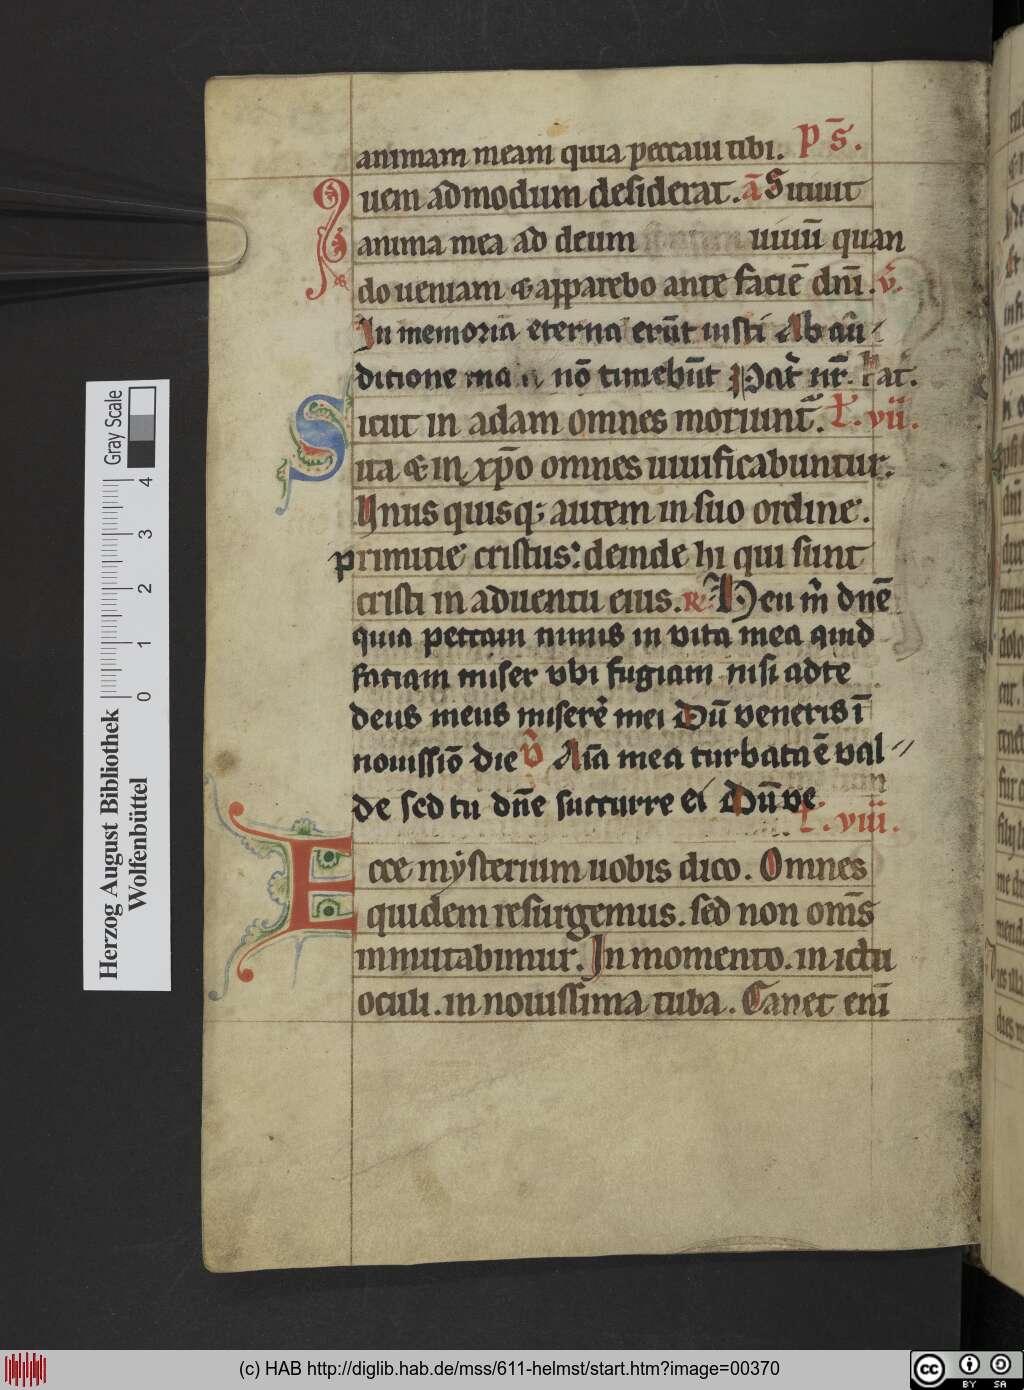 animam meam quia peccaui tibi. p̄s̄.
Quem admodum desiderat. ā Sitiuit
anima mea ad deum uiuū quan
do ueniam & apparebo ante faciē dn̄i. v̄.
In memoria eterna erūt iusti Ab au
ditione mala nō timebūt Pat̄ nr̄. Pat.
Sicut in adam omnes moriunt̄. L. vii.
ita & in xp̄o omnes uiuificabuntur.
Vnus quisq; autem in suo ordine.
primitie cristus: deinde hi qui sunt
cristi in aduentu eius. R̄ Heu m̄ dnē
quia peccaui nimis in vita mea quid
faciam miser vbi fugiam nisi adte
deus meus miserē mei Dū veneris ī
nouissiō die V̄ Aīa mea turbata ē val
de sed tu dn̄e succurre ei Dū ve
L. viii.
Ecce mẏsterium uobis dico. Omnes
quidem resurgemus. sed non om̄s
inmutabimur. In momento. in ictu
oculi. in nouissima tuba. Canet enī
Gray Scale
0 1 2 3 4
Herzog August Bibliothek
Wolfenbüttel
(c) HAB http://diglib.hab.de/mss/611-helmst/start.htm?image=00370
cc BY SA